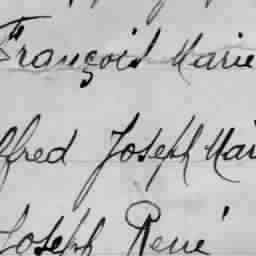 François Marie
lfred Joseph Mari
Joseph René